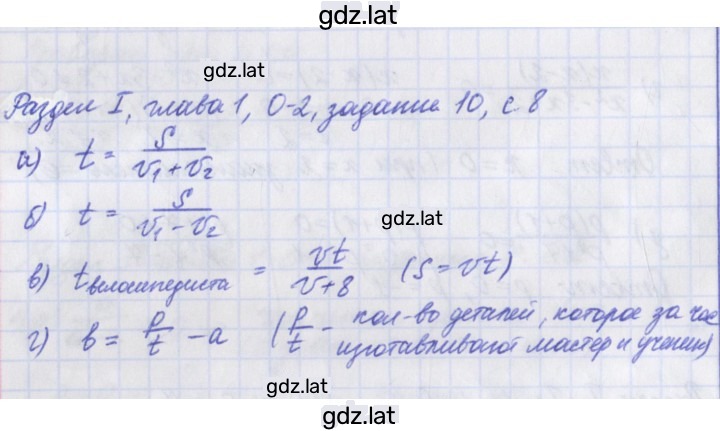 gdz.lat
gdz.lat
Раздел I, глава 1, О-2, задание 10, с. 8
а) t = S / (v₁ + v₂)
gdz.lat
б) t = S / (v₁ − v₂)
в) t велосипедиста = vt / (v+8) (S = vt)
г) b = p/t − a (p/t − кол-во деталей, которое за час
изготавливают мастер и ученик)
gdz.lat